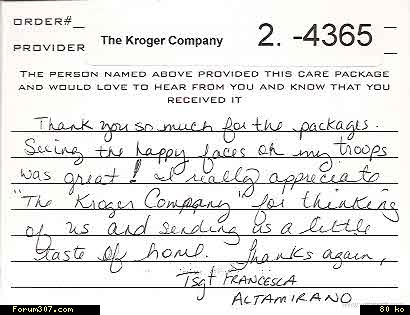 ORDER#_
PROVIDER
The Kroger Company
2. -4365
THE PERSON NAMED ABOVE PROVIDED THIS CARE PACKAGE
AND WOULD LOVE TO HEAR FROM YOU AND KNOW THAT YOU
RECEIVED IT
Thank you so much for the packages.
Seeing the happy faces on my troops
was great! I really appreciate
"The Kroger Company" for thinking
of us and sending us a little
taste of home. Thanks again,
Tsgt FRANCESCA
ALTAMIRANO
Forum307.com
80 ko